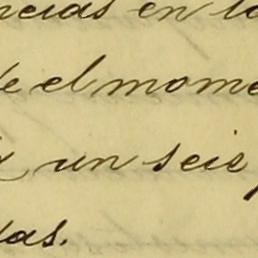 ncias en la
de el mome
un seis
das.